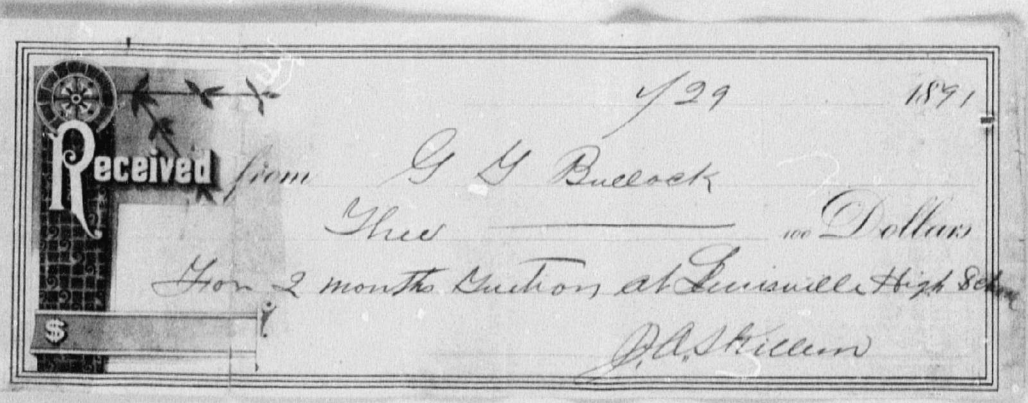 4/29 1891
Received from G G Bullock
Three 100 Dollars
For 2 months Tuition at Lewisville High School
$
J. A. Skillern